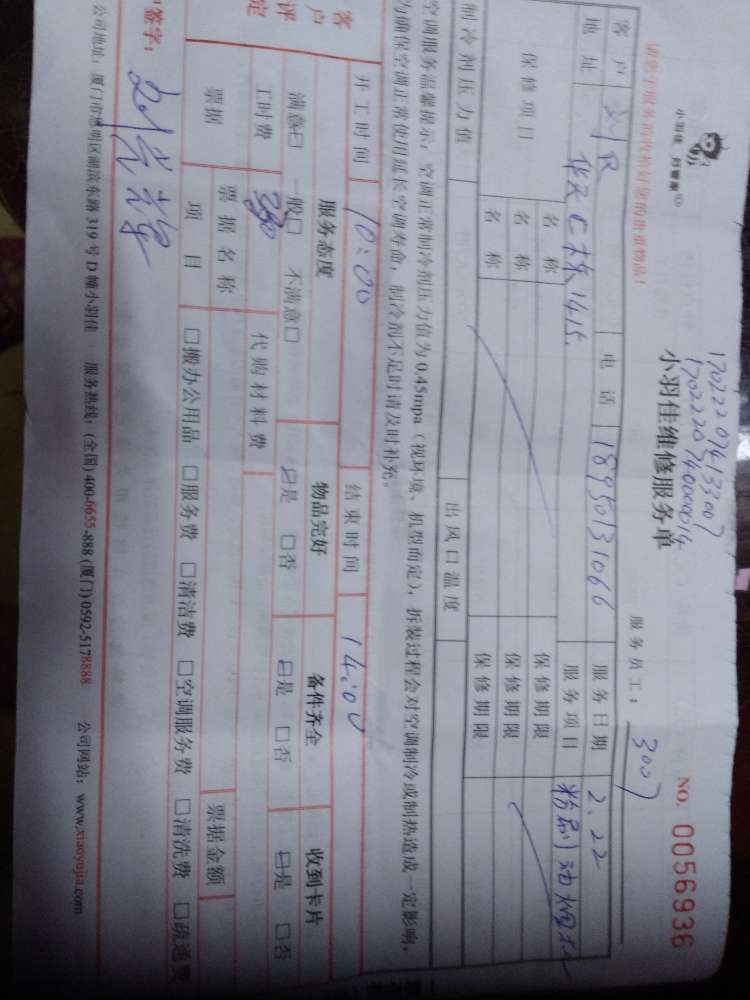 小羽佳 好管家
17022201413007
1702220740000014
小羽佳维修服务单
NO. 0056936
服务员工: 3007
客户 刘R 电话 18950131066 服务日期 2.22
地址 华天C栋1415. 服务项目 粉刷
保修项目 名称 保修期限
名称 保修期限
名称 保修期限
制冷剂压力值 出风口温度
空调服务温馨提示:空调正常制冷剂压力值为0.45mpa(视环境、机型而定),拆装过程会对空调制冷或制热造成一定影响,
为确保空调正常使用延长空调寿命,制冷剂不足时请及时补充。
开工时间 10:00 结束时间 14:00
客户评定 服务态度 物品完好 备件齐全 收到卡片
满意☑ 一般□ 不满意□ ☑是 □否 ☑是 □否 ☑是 □否
工时费 代购材料费
票据 票据名称 票据金额
项目 □搬办公用品 □服务费 □清洁费 □空调服务费 □清洗费 □疏通费
签字:
公司地址:厦门市思明区湖滨东路319号D幢小羽佳 服务热线:(全国)400-6655-888(厦门)0592-5178888 公司网站:www.xiaoyujia.com